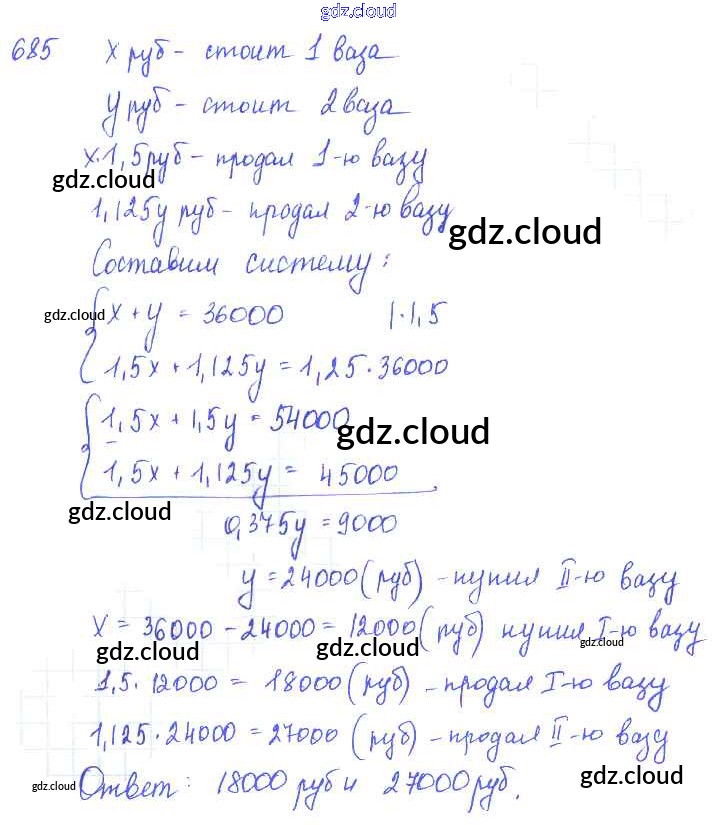 gdz.cloud
685 x руб - стоит 1 ваза
y руб - стоит 2 ваза
x·1,5 руб - продал 1-ю вазу
gdz.cloud
1,125y руб - продал 2-ю вазу
gdz.cloud
Составим систему:
gdz.cloud
x + y = 36000 |·1,5
1,5x + 1,125y = 1,25·36000
1,5x + 1,5y = 54000
gdz.cloud
1,5x + 1,125y = 45000
gdz.cloud
0,375y = 9000
y = 24000 (руб) - купил II-ю вазу
x = 36000 - 24000 = 12000 (руб) купил I-ю вазу
gdz.cloud gdz.cloud gdz.cloud
1,5·12000 = 18000 (руб) - продал I-ю вазу
1,125·24000 = 27000 (руб) - продал II-ю вазу
gdz.cloud
Ответ: 18000 руб и 27000 руб.
gdz.cloud